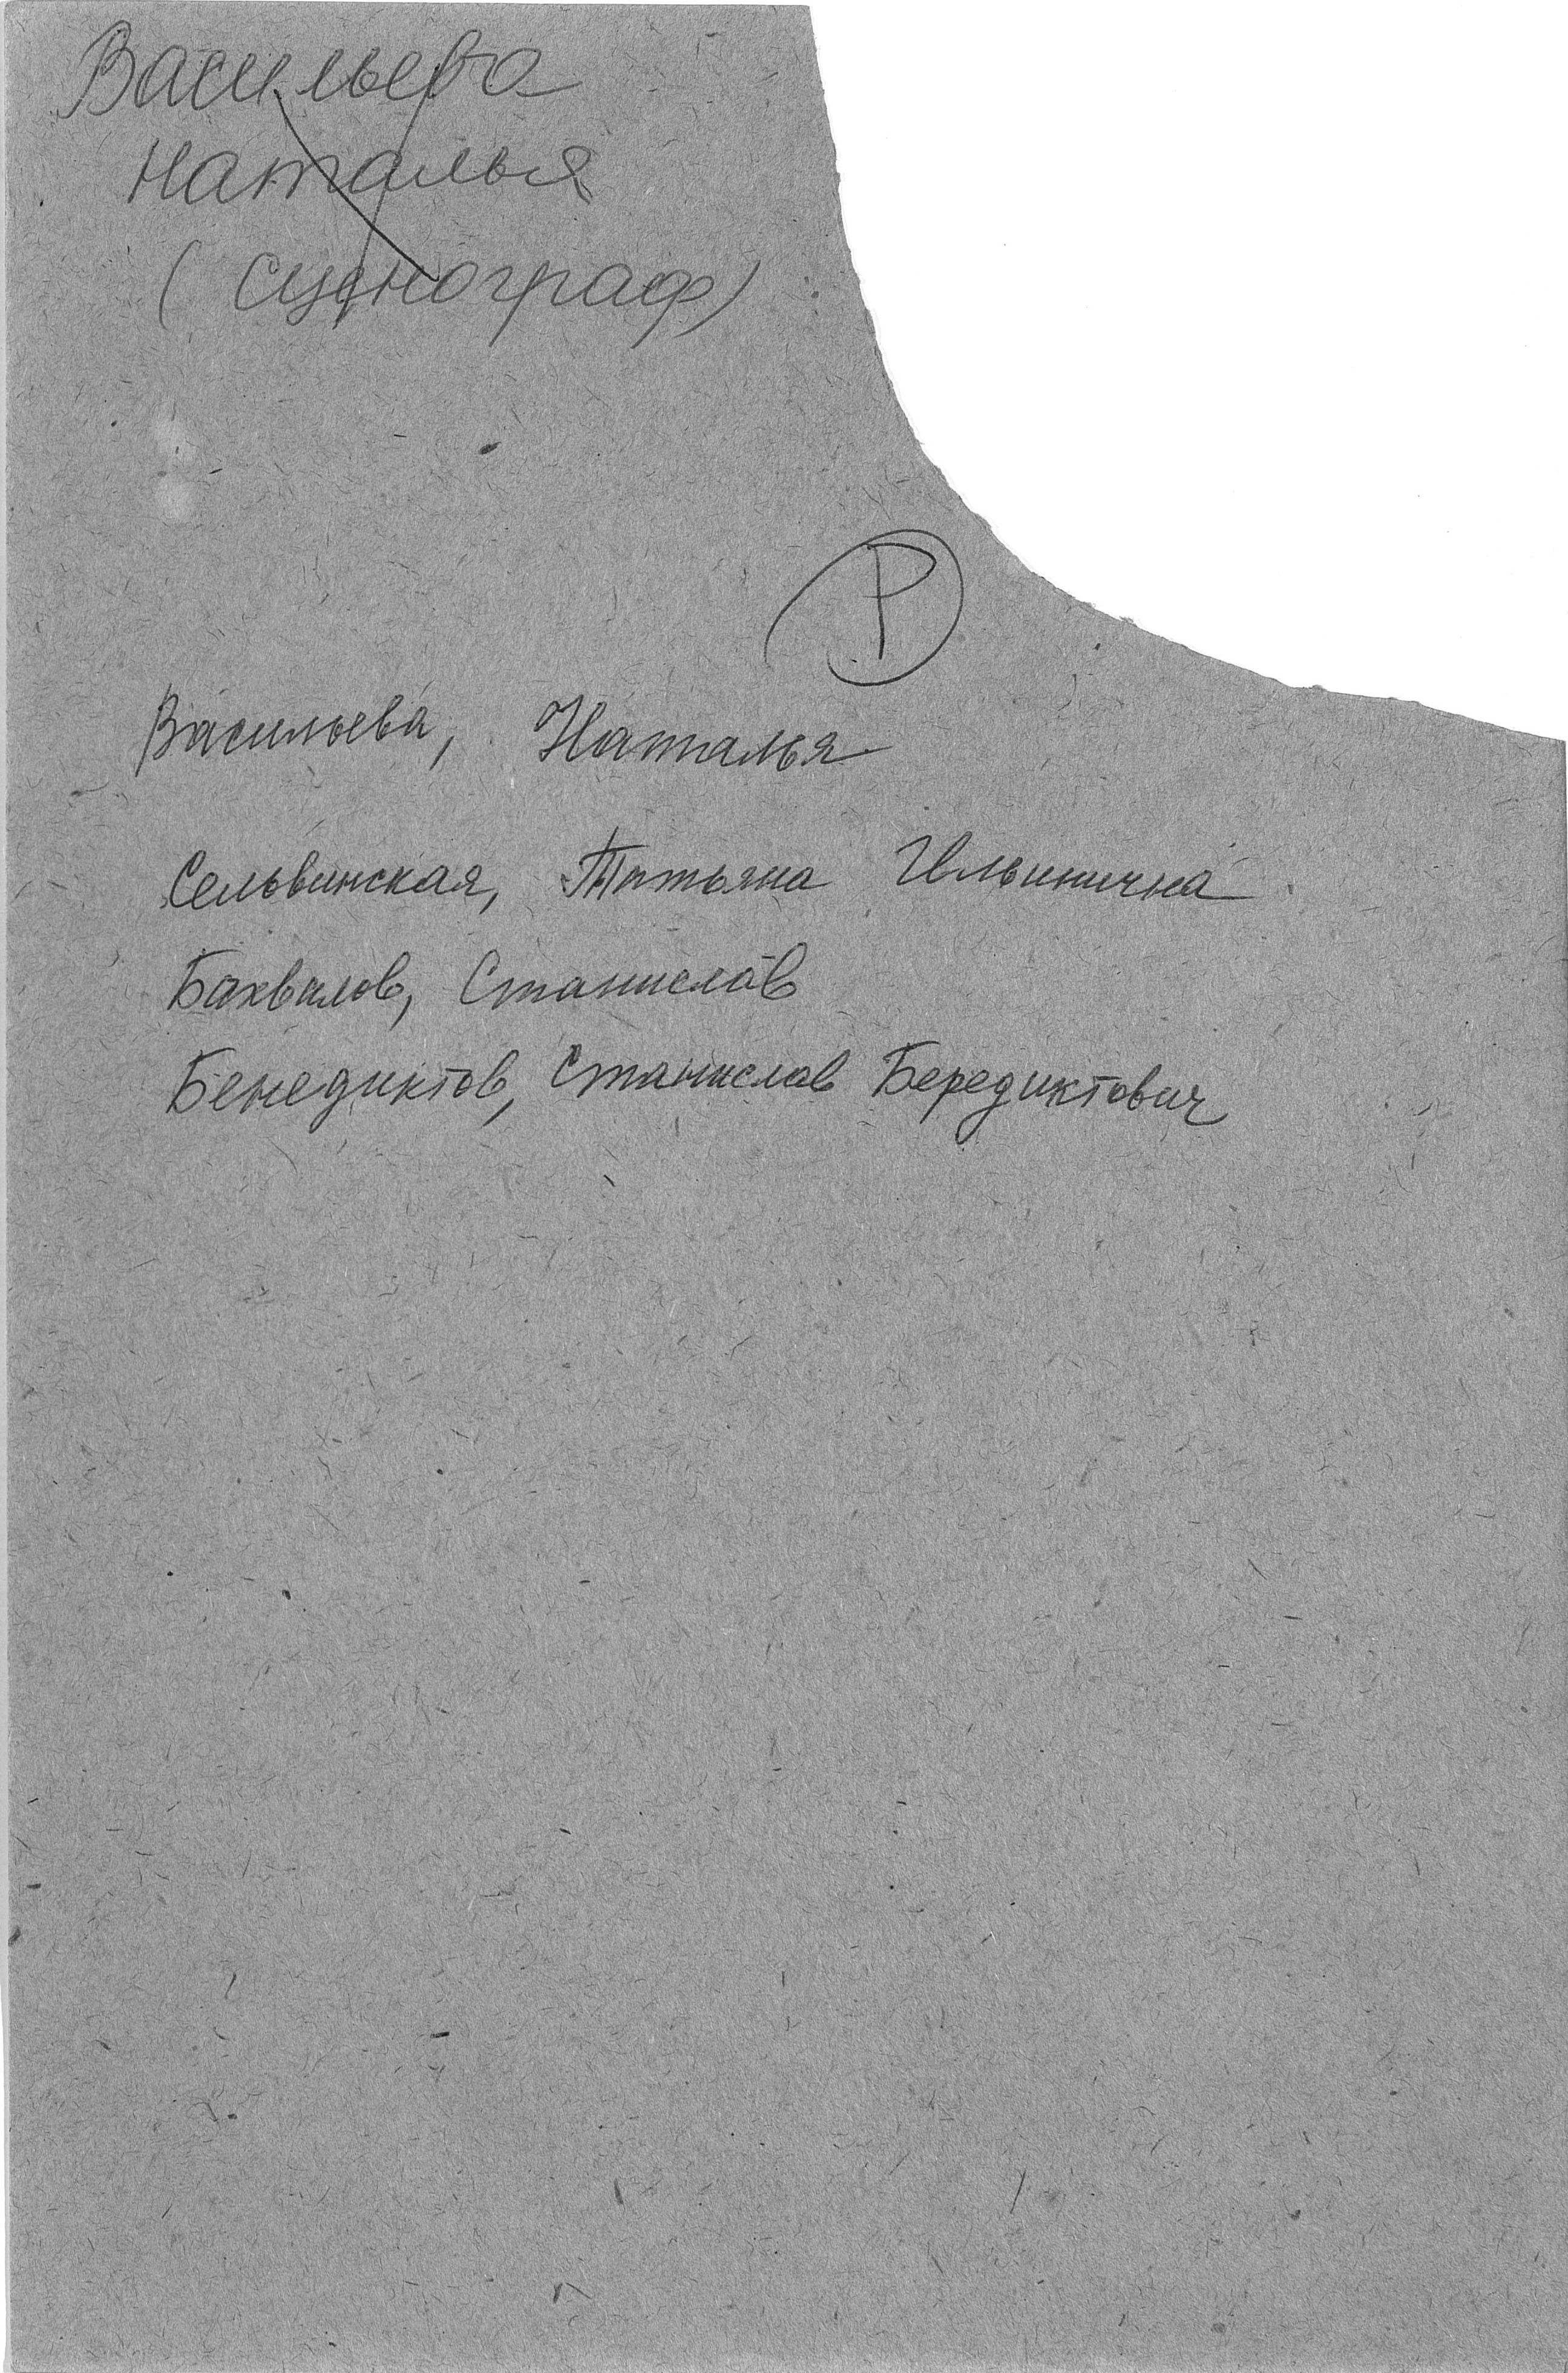 Васильева
Наталья
(сценограф)
Р
Васильева, Наталья
Сельвинская, Татьяна Ильинична
Бахвалов, Станислав
Бенедиктов, Станислав Бередиктович